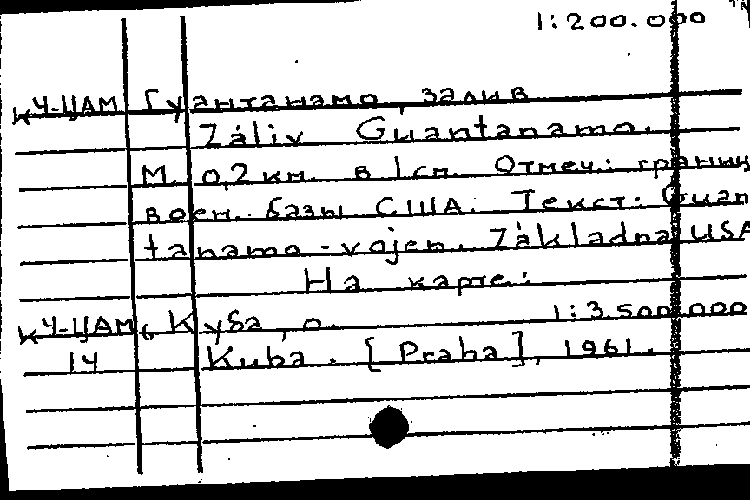 1:200.000
КЧ-ЦАМ Гуантанамо, залив
Záliv Guantanamo.
М. 0,2 км. в 1 см. Отмеч.: границ
воен. базы США. Текст: Guan
tanamo - vojen. Základna USA
На карте:
КЧ-ЦАМ, Куба, о. 1:3.500.000
14 Kuba. [Praha], 1961.